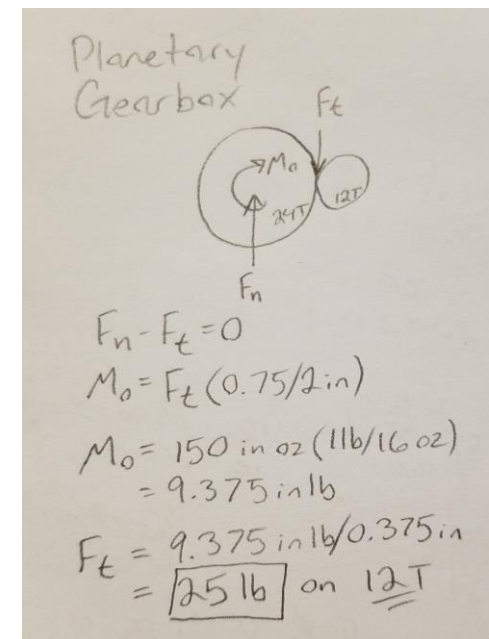 Planetary
Gearbox
Ft
Mo
24T
12T
Fn
Fn - Ft = 0
Mo = Ft (0.75/2in)
Mo = 150 in oz (1lb/16 oz)
= 9.375 in lb
Ft = 9.375 in lb/0.375 in
= 25 lb on 12T